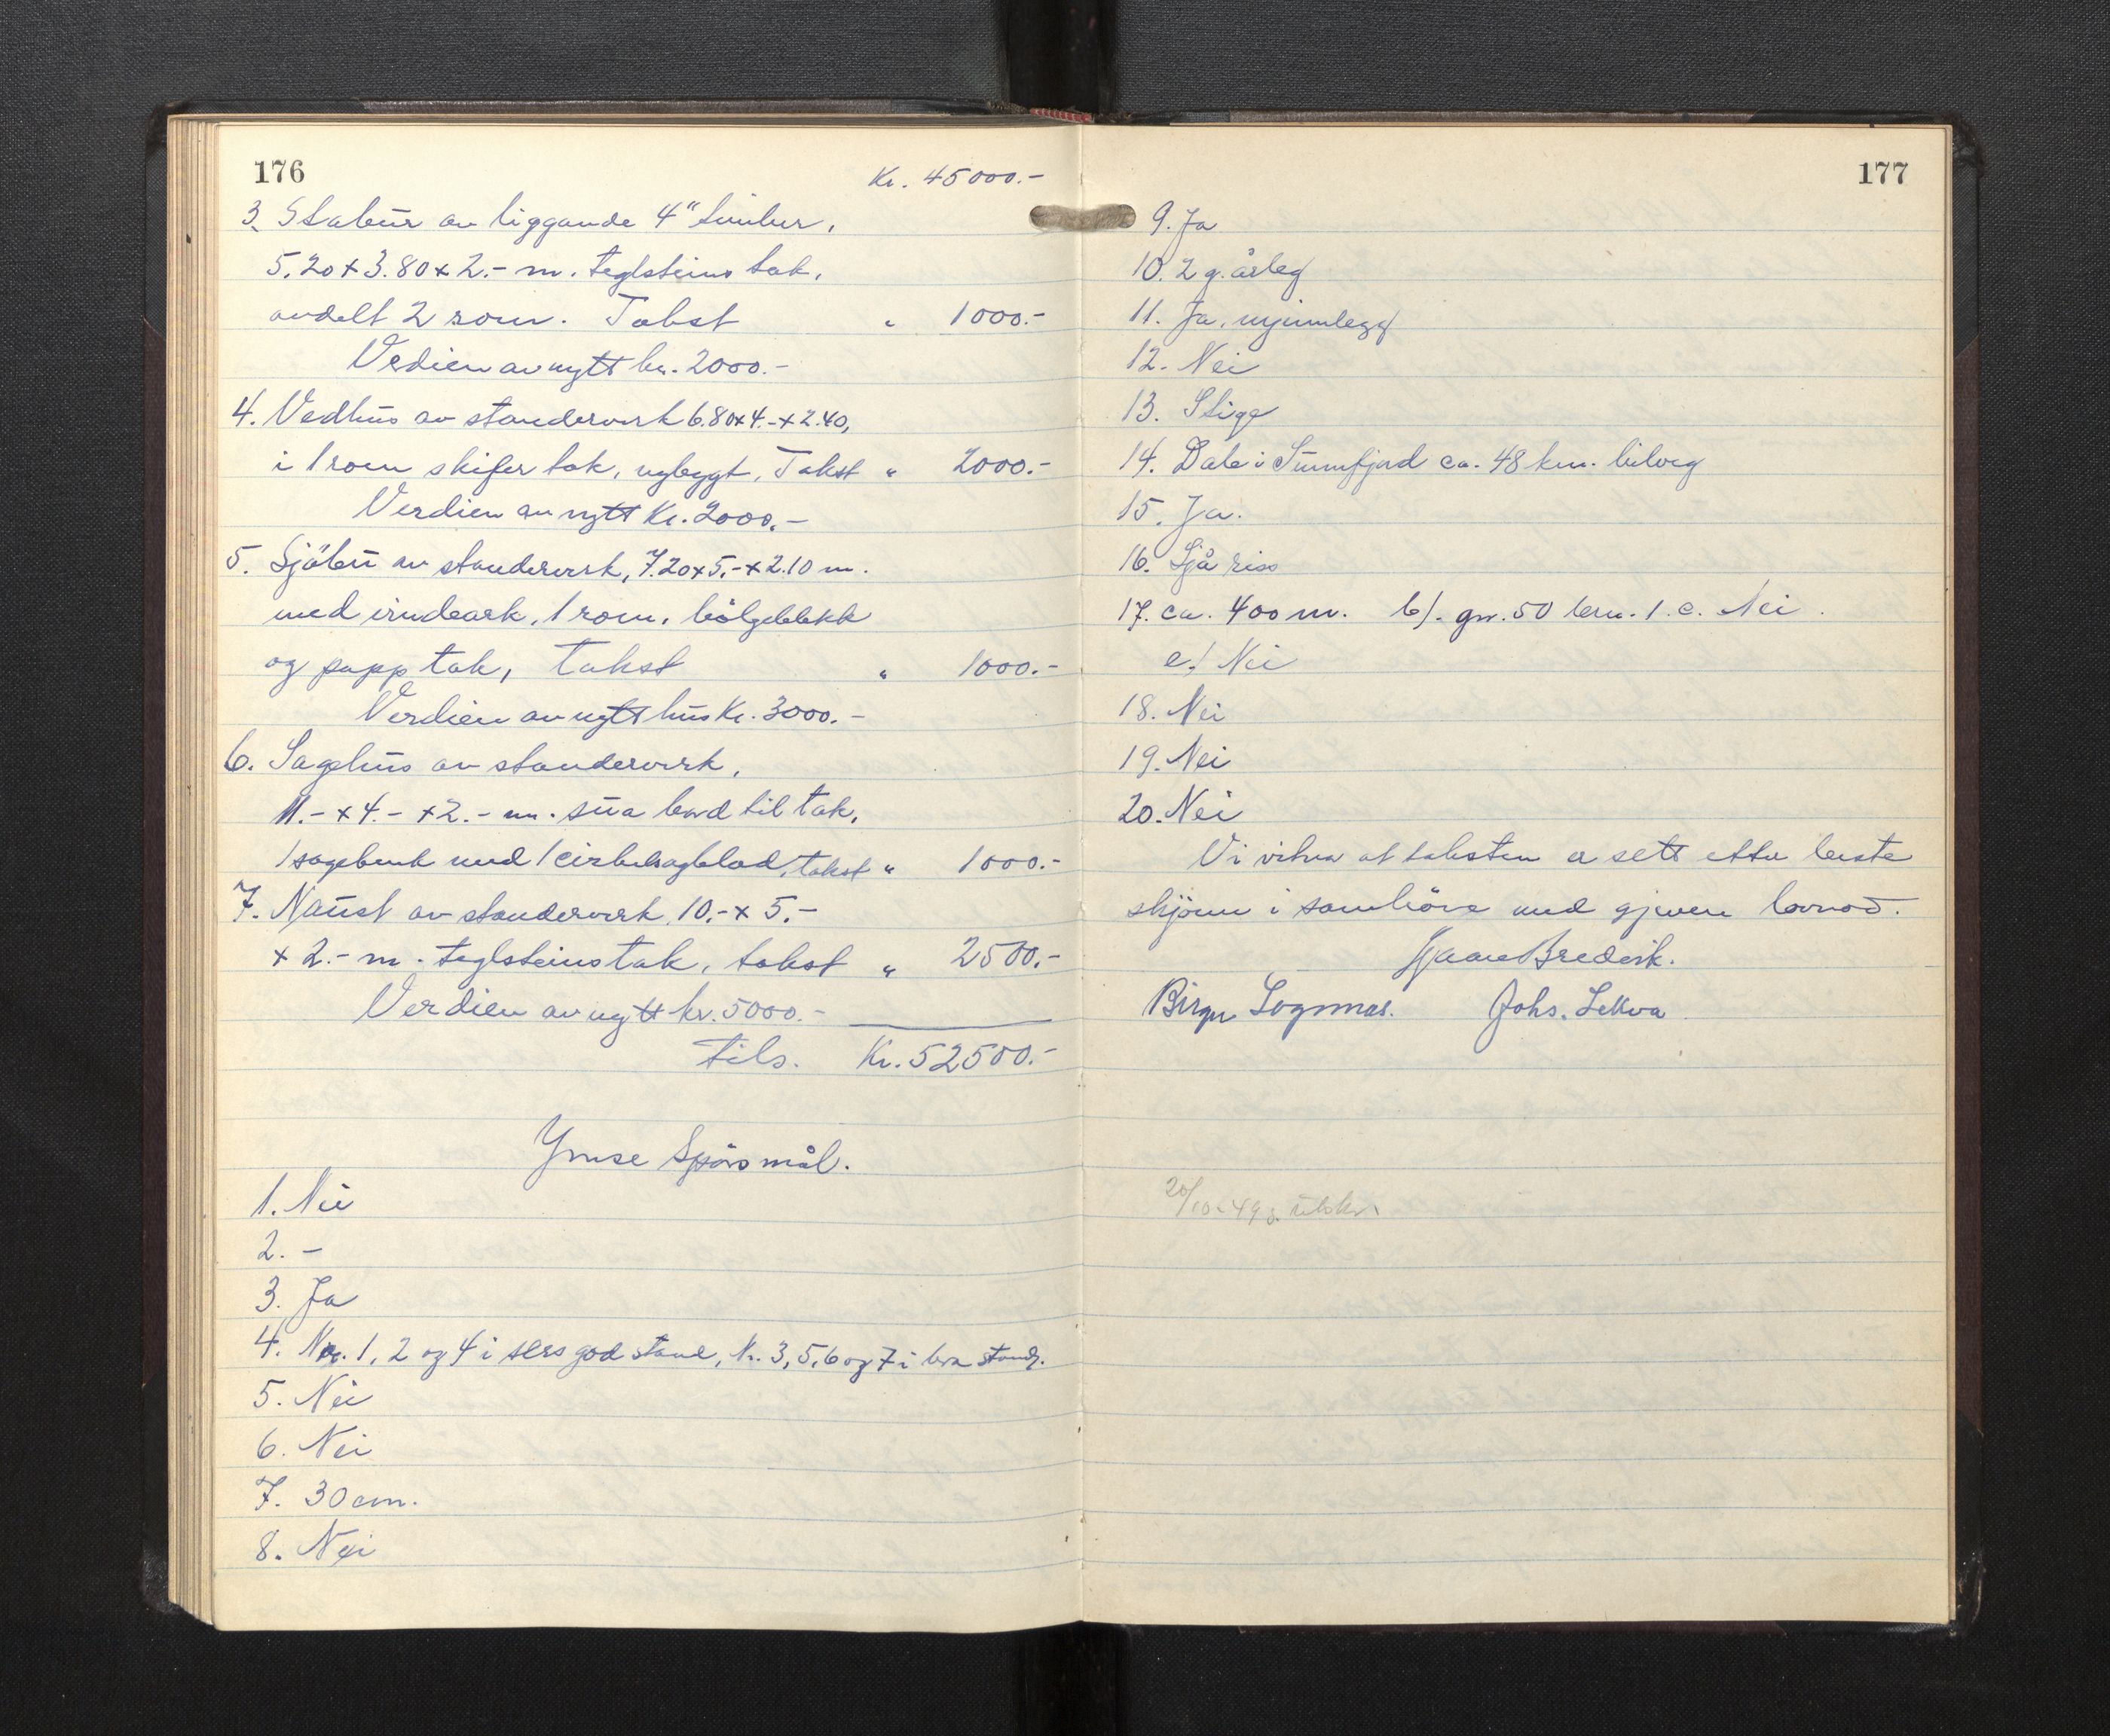 176
Kr. 45000.-
3. Stabur av liggande 4" timber,
5.20 x 3.80 x 2.- m. teglsteins tak,
avdelt 2 rom. Takst " 1000.-
Verdien av nytt kr. 2000.-
4. Vedhus av standerverk 6.80x4.-x2.40,
i 1 rom skifer tak, nybygt, Takst " 2000.-
Verdien av nytt Kr. 2000.-
5. Sjöbu av standerverk, 7.20x5.-x2.10 m.
med 1 rom, bölgeblekk
og papp tak, takst " 1000.-
Verdien av nytt hus Kr. 3000.-
6. Sagehus av standerverk,
11.- x 4.- x 2.- m. sua bord til tak,
1 sagebenk med 1 cirkelsagblad, takst " 1000.-
7. Naust av standerverk, 10.- x 5.-
x 2.- m. teglsteinstak, takst " 2500.-
Verdien av nytt kr. 5000.-
tils. Kr. 52500.-
Ymse Spörsmål.
1. Nei
2. -
3. Ja
4. Nr. 1, 2 og 4 i sers god stand, Nr. 3, 5, 6 og 7 i bra stand.
5. Nei
6. Nei
7. 30 cm.
8. Nei
177
9. Ja
10. 2 g. årleg
11. Ja, nyinnlegg
12. Nei
13. Stige
14. Dale i Sunnfjord ca. 48 km. bilveg
15. Ja.
16. Sjå riss
17. ca. 400 m. b). gr. 50 brn. 1. c. Nei.
e) Nei
18. Nei
19. Nei
20. Nei
Vi vitnar at taksten er sett etter beste
skjönn i samhöve med gjeven lovnad.
Bredvik.
Birger Sognnes. Johs. Lekva.
20/10-49 s. utskr.